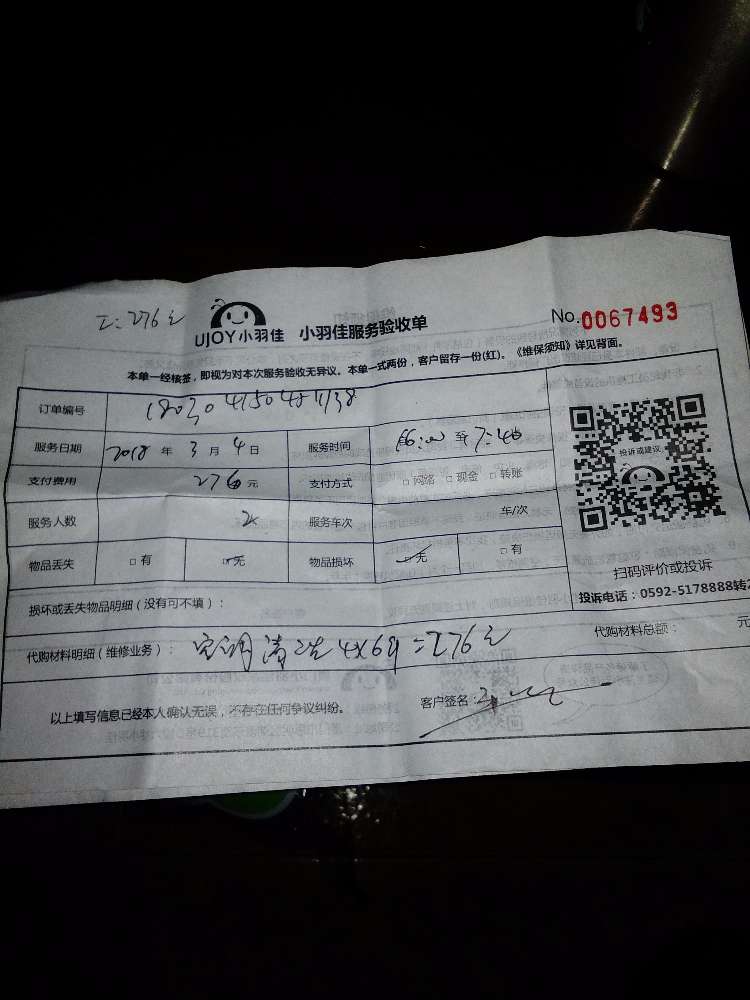 276元
UJOY小羽佳 小羽佳服务验收单 No.0067493
本单一经核签，即视为对本次服务验收无异议。本单一式两份，客户留存一份(红)。《维保须知》详见背面。
订单编号
服务日期 2018 年 3 月 4 日 服务时间 至
支付费用 276 元 支付方式 □ 网络 □ 现金 □ 转账
投诉或建议
服务人数 2 服务车次 车/次
物品丢失 □ 有 □ 无 物品损坏 □ 无 □ 有
扫码评价或投诉
损坏或丢失物品明细（没有可不填）：
投诉电话：0592-5178888转2
代购材料明细（维修业务）： =276元 代购材料总额： 元
以上填写信息已经本人确认无误，不存在任何争议纠纷。 客户签名：